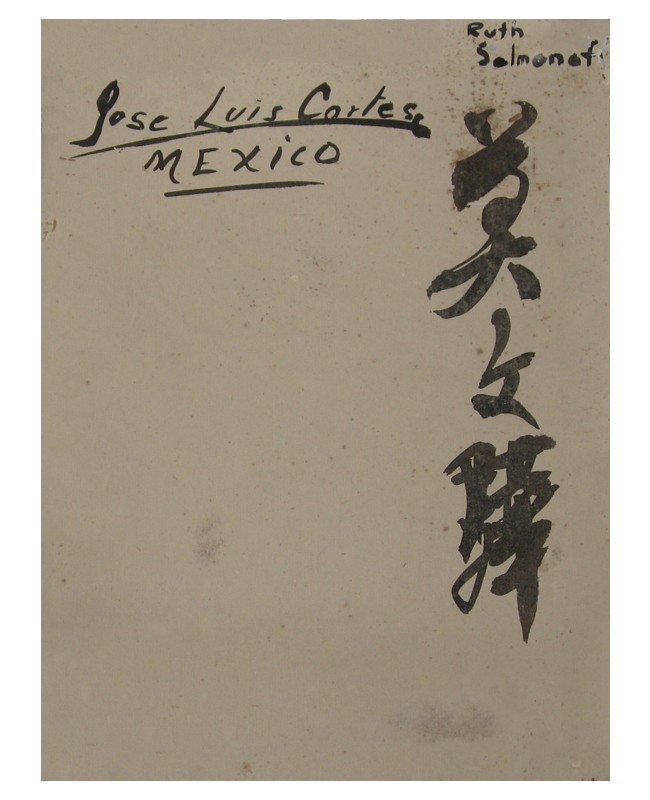 Ruth
Salmonof
Jose Luis Cortes
MEXICO
莫文驊